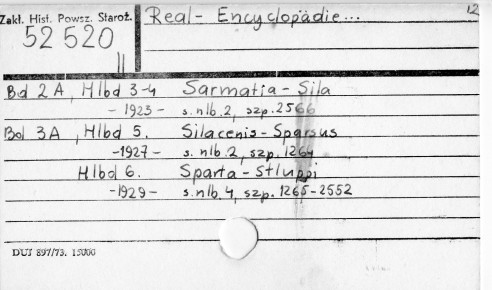 Zakł. Hist. Powsz. Staroż. Real-Encyclopädie... 12
52 520
II
Bd 2 A, Hlbd 3-4 Sarmatia - Sila
- 1923 - s. nlb. 2, szp. 2566
Bd 3A, Hlbd 5. Silacenis - Sparsus
- 1927 - s. nlb. 2, szp. 1264
Hlbd 6. Sparta - Stluppi
- 1929 - s. nlb. 4, szp. 1265-2552
DUJ 897/73. 15000